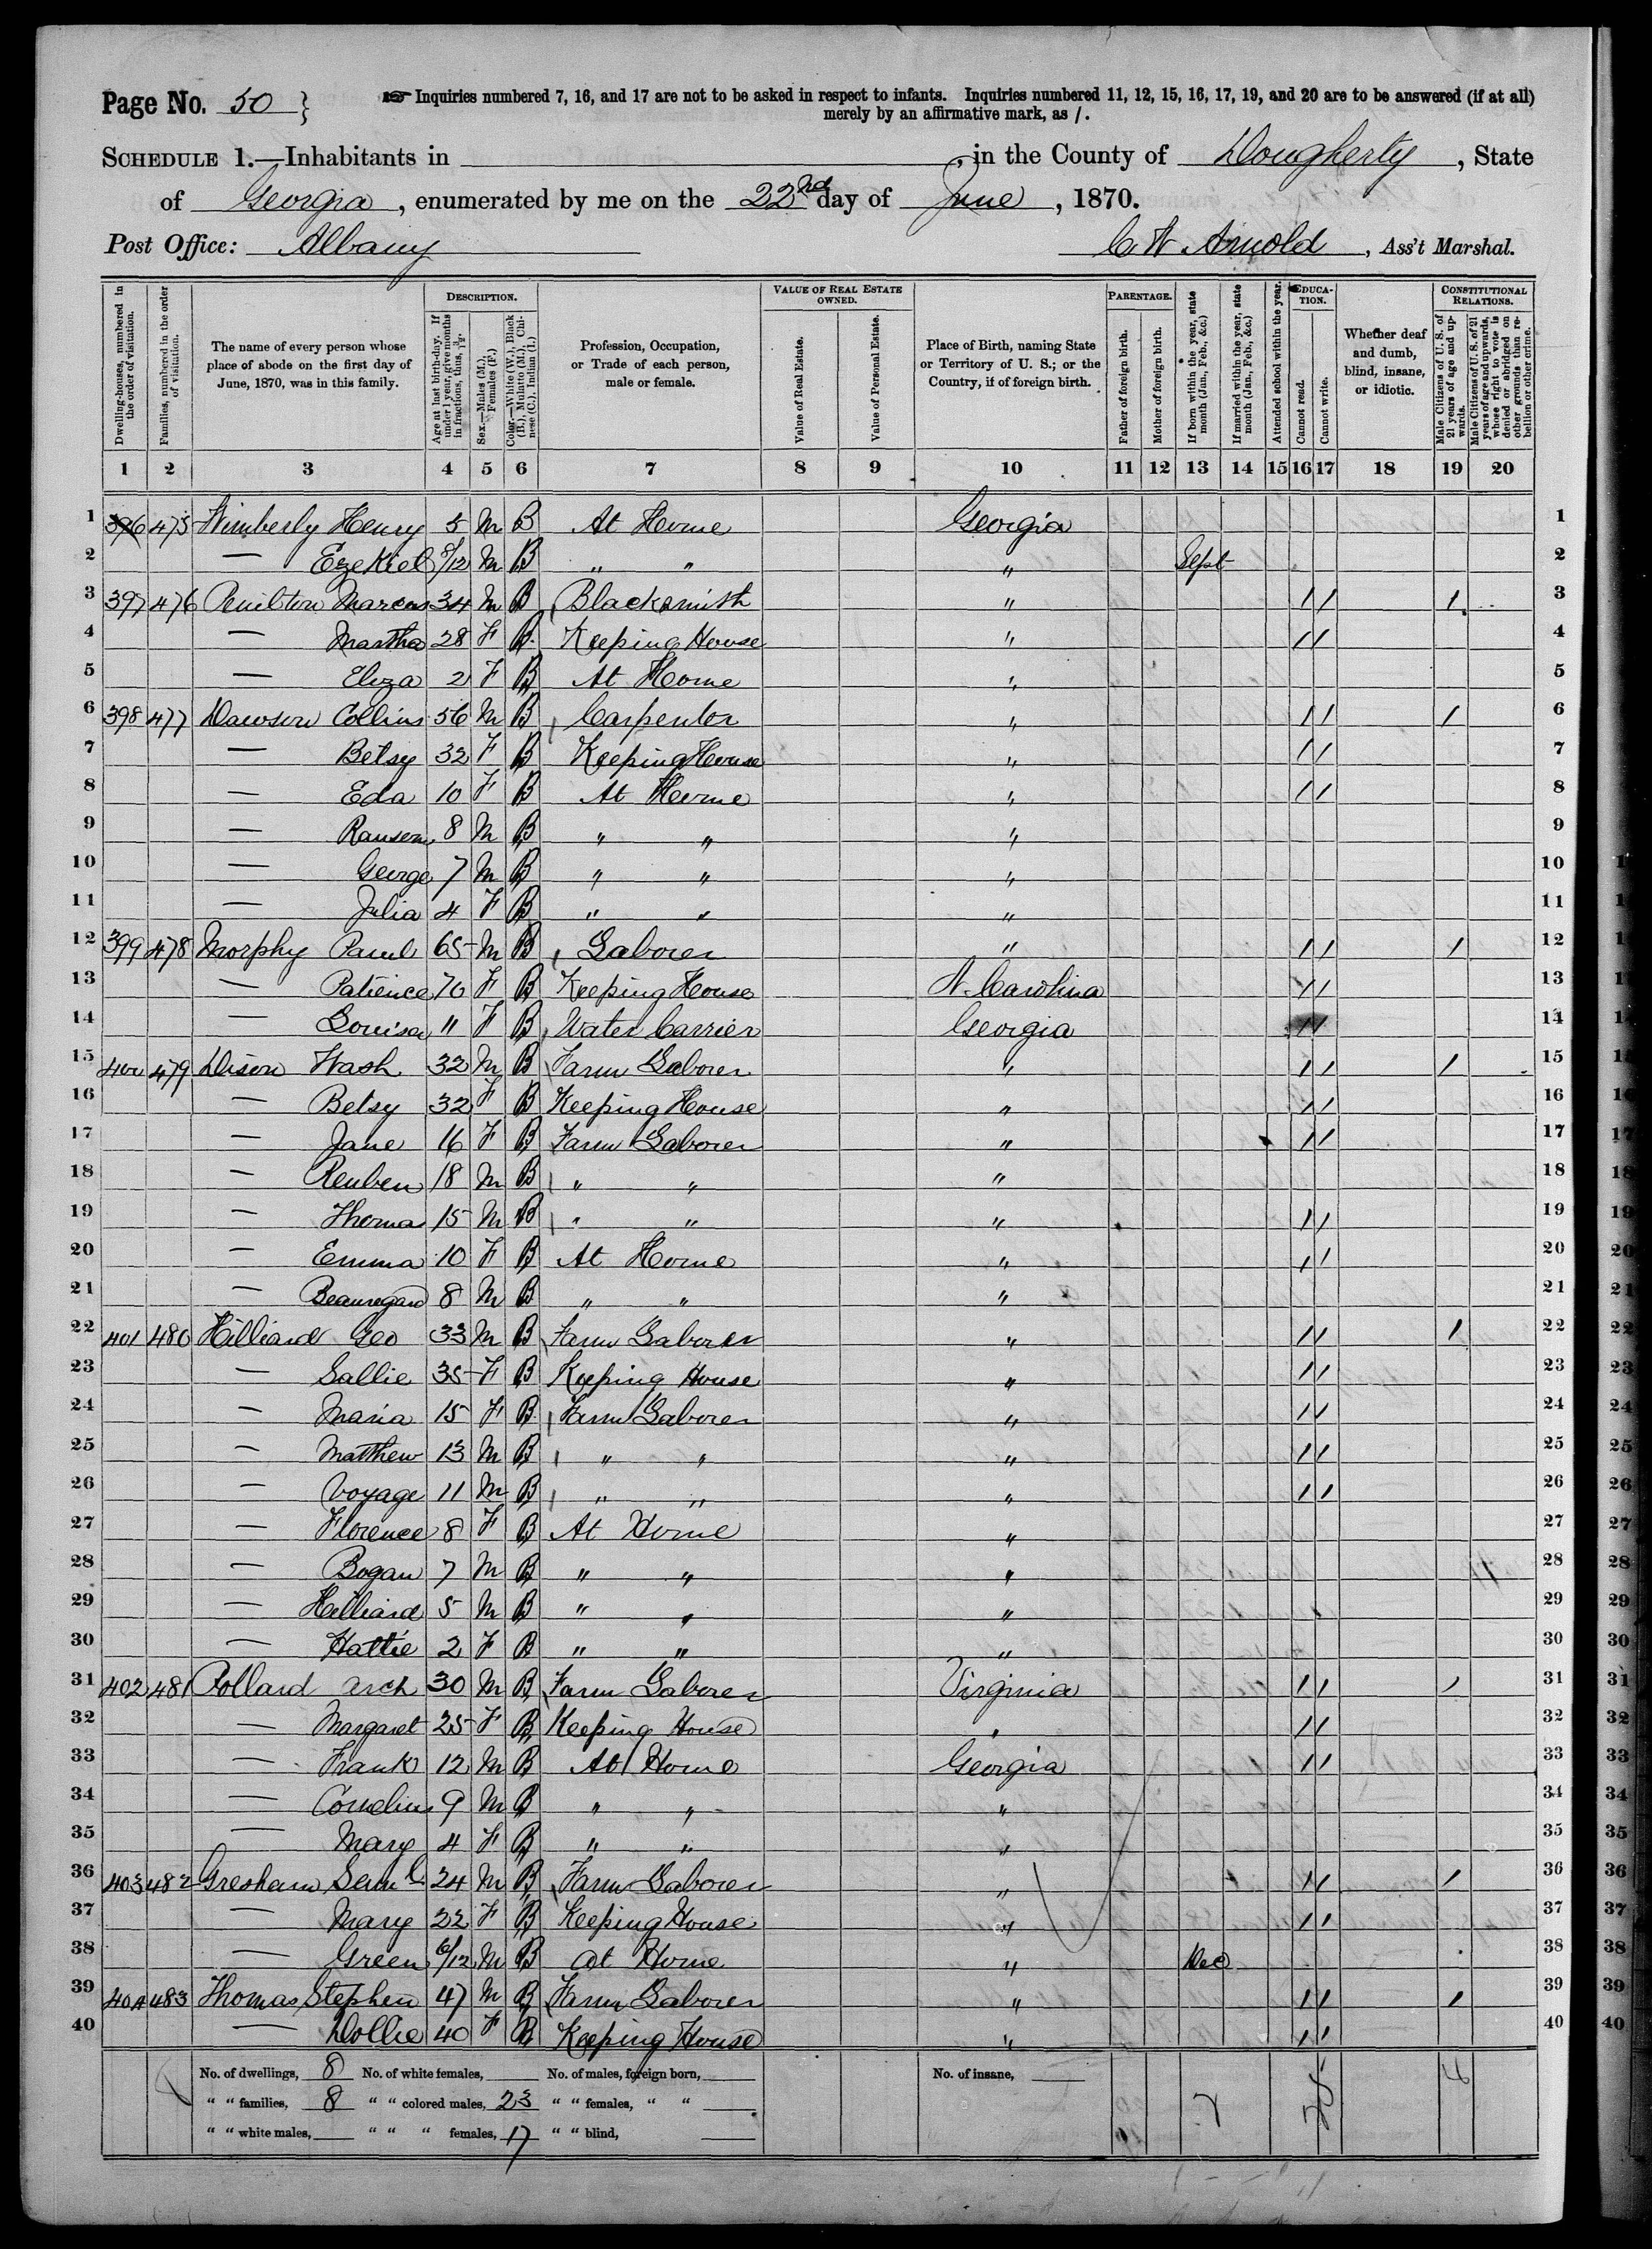 Page No. 50 }
☞ Inquiries numbered 7, 16, and 17 are not to be asked in respect to infants. Inquiries numbered 11, 12, 15, 16, 17, 19, and 20 are to be answered (if at all)
merely by an affirmative mark, as /.
SCHEDULE 1.—Inhabitants in , in the County of Dougherty, State
of Georgia, enumerated by me on the 22nd day of June, 1870.
Post Office: Albany C W Arnold, Ass't Marshal.
Dwelling-houses, numbered in the order of visitation.
Families, numbered in the order of visitation.
The name of every person whose place of abode on the first day of June, 1870, was in this family.
DESCRIPTION.
Age at last birth-day. If under 1 year, give months in fractions, thus, 3/12.
Sex.—Males (M.), Females (F.)
Color.—White (W.), Black (B.), Mulatto (M.), Chinese (C.), Indian (I.)
Profession, Occupation, or Trade of each person, male or female.
VALUE OF REAL ESTATE OWNED.
Value of Real Estate.
Value of Personal Estate.
Place of Birth, naming State or Territory of U. S.; or the Country, if of foreign birth.
PARENTAGE.
Father of foreign birth.
Mother of foreign birth.
If born within the year, state month (Jan., Feb., &c.)
If married within the year, state month (Jan., Feb., &c.)
Attended school within the year.
EDUCATION.
Cannot read.
Cannot write.
Whether deaf and dumb, blind, insane, or idiotic.
CONSTITUTIONAL RELATIONS.
Male Citizens of U. S. of 21 years of age and upwards.
Male Citizens of U. S. of 21 years of age and upwards, whose right to vote is denied or abridged on other grounds than rebellion or other crime.
1 2 3 4 5 6 7 8 9 10 11 12 13 14 15 16 17 18 19 20
1 396 475 Wimberly Henry 5 M B At Home Georgia 1
2 — Ezekiel 8/12 M B " " " Sept 2
3 397 476 Marcus 34 M B Blacksmith " / / / 3
4 — Martha 28 F B Keeping House " / / 4
5 — Eliza 2 F B At Home " 5
6 398 477 Dawson Collins 56 M B Carpentor " / / / 6
7 — Betsy 32 F B Keeping House " / / 7
8 — Eda 10 F B At Home " / / 8
9 — Ransom 8 M B " " " 9
10 — George 7 M B " " " 10
11 — Julia 4 F B " " " 11
12 399 478 Morphy Paul 65 M B Laborer " / / / 12
13 — Patience 70 F B Keeping House N. Carolina / / 13
14 — Louisa 11 F B Water Carrier Georgia / / 14
15 400 479 Dison Wash 32 M B Farm Laborer " / / / 15
16 — Betsy 32 F B Keeping House " / / 16
17 — Jane 16 F B Farm Laborer " / / 17
18 — Reuben 18 M B " " " 18
19 — Thomas 15 M B " " " / / 19
20 — Emma 10 F B At Home " / / 20
21 — Beauregard 8 M B " " " 21
22 401 480 Hilliard Geo 33 M B Farm Laborer " / / / 22
23 — Sallie 35 F B Keeping House " / / 23
24 — Maria 15 F B Farm Laborer " / / 24
25 — Matthew 13 M B " " " / / 25
26 — Voyage 11 M B " " " / / 26
27 — Florence 8 F B At Home " 27
28 — Bogan 7 M B " " " 28
29 — Hilliard 5 M B " " " 29
30 — Hattie 2 F B " " " 30
31 402 481 Pollard Arch 30 M B Farm Laborer Virginia / / / 31
32 — Margaret 25 F B Keeping House " / / 32
33 — Frank 12 M B At Home Georgia / / 33
34 — Cornelius 9 M B " " " 34
35 — Mary 4 F B " " " 35
36 403 482 Gresham Saml 24 M B Farm Laborer " / / / 36
37 — Mary 22 F B Keeping House " / / 37
38 — Green 6/12 M B At Home " Dec 38
39 404 483 Thomas Stephen 47 M B Farm Laborer " / / / 39
40 — Dollie 40 F B Keeping House " / / 40
No. of dwellings, 8 No. of white females, No. of males, foreign born, No. of insane,
" " families, 8 " " colored males, 23 " " females, " "
" " white males, " " " females, 17 " " blind,